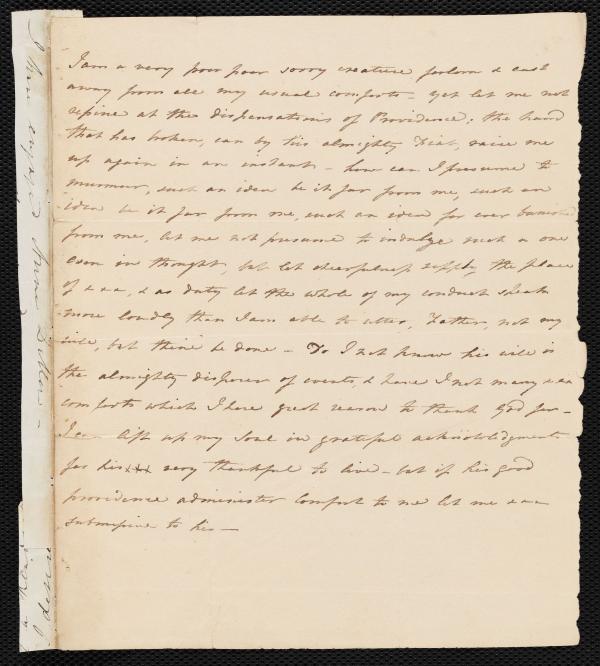 I am a very poor poor sorry creature forlorn & cast
away from all my usual comforts - yet let me not
repine at the dispensations of Providence; the hand
that has broken, can by his almighty Fiat, raise me
up again in an instant - how can I presume to
murmur, such an idea be it far from me, such an
idea be it far from me, such an idea for ever banish
from me, let me not presume to indulge such a one
even in thought, but let chearfulness supply the place
of xxx, & as duty let the whole of my conduct speak
more loudly than I am able to utter, Father, not my
will, but thine be done - Do I not know his will is
the almighty disposer of events, & have I not many xxx
comforts which I have great reason to thank God for -
I can lift up my Soul in grateful acknowledgments
for his xxx very thankful to live - but if his good
providence administer comfort to me let me xxx
submissive to his -